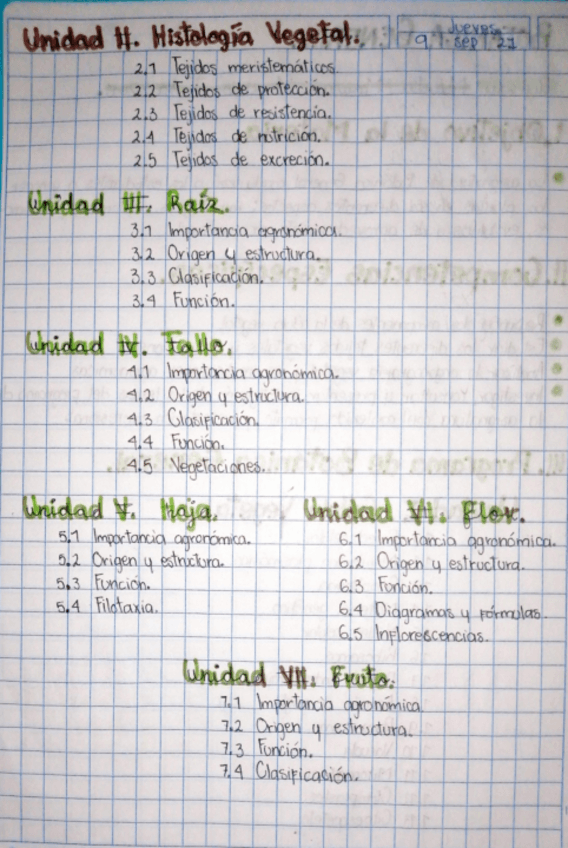 Unidad II. Histología Vegetal.
Jueves
9 sep 21
2.1 Tejidos meristemáticos
2.2 Tejidos de protección.
2.3 Tejidos de resistencia.
2.4 Tejidos de nutrición.
2.5 Tejidos de excreción.
Unidad III. Raíz.
3.1 Importancia agronómica.
3.2 Origen y estructura.
3.3 Clasificación.
3.4 Función.
Unidad IV. Tallo.
4.1 Importancia agronómica.
4.2 Origen y estructura.
4.3 Clasificación.
4.4 Función.
4.5 Vegetaciones.
Unidad V. Hoja.
5.1 Importancia agronómica.
5.2 Origen y estructura.
5.3 Función.
5.4 Filotaxia.
Unidad VI. Flor.
6.1 Importancia agronómica.
6.2 Origen y estructura.
6.3 Función.
6.4 Diagramas y fórmulas.
6.5 Inflorescencias.
Unidad VII. Fruto.
7.1 Importancia agronómica
7.2 Origen y estructura.
7.3 Función.
7.4 Clasificación.